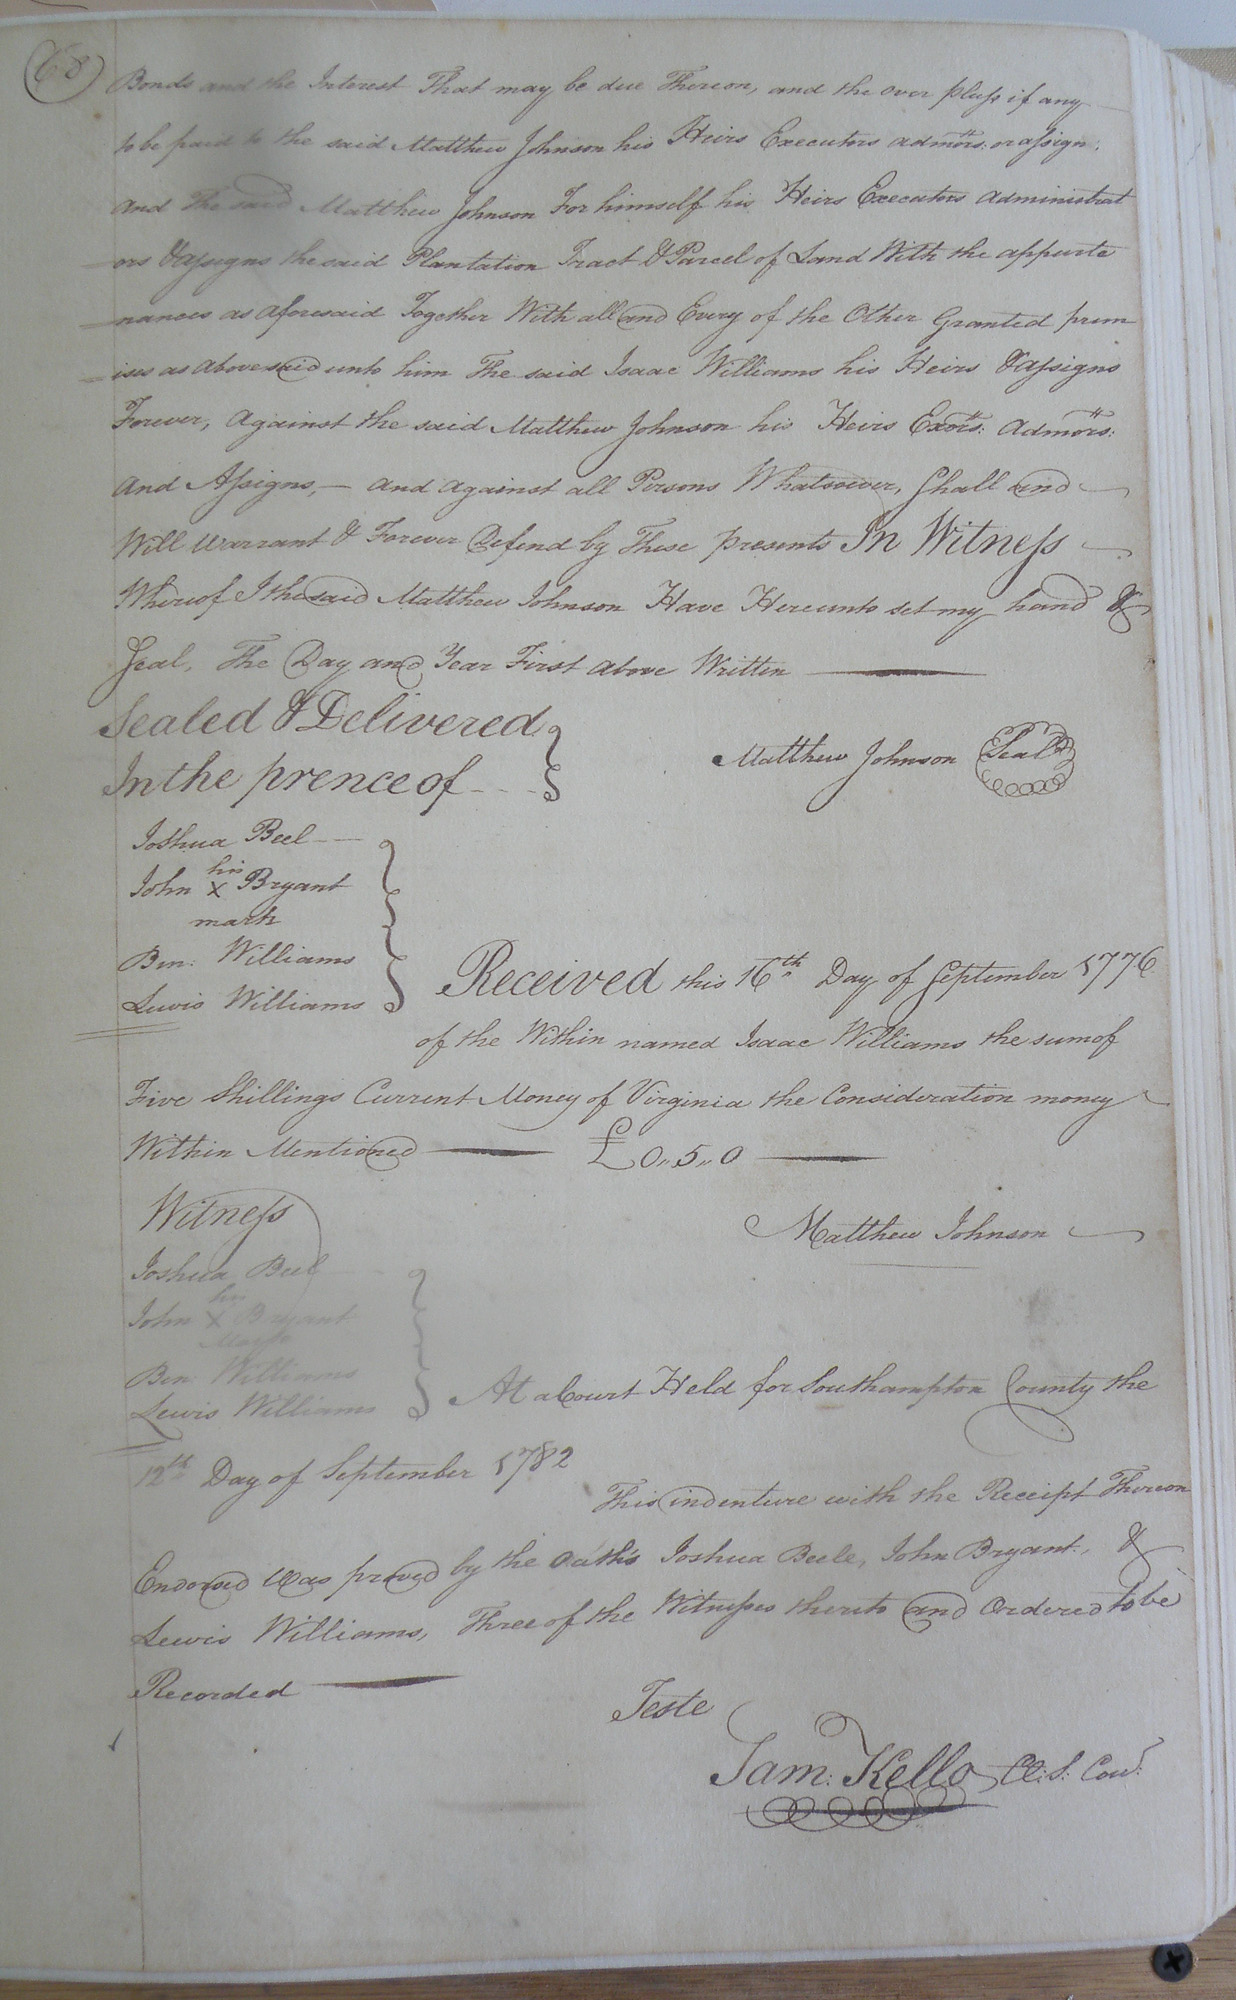 68
Bonds and the Interest That may be due Thereon, and the over pluss if any
to be paid to the said Matthew Johnson his Heirs Executors admors. or assign.
And The said Matthew Johnson For himself his Heirs Executors Administrat
ors & assigns the said Plantation Tract & Parcel of Land With the appurte
nances as aforesaid Together With all and Every of the Other Granted prem
ises as above said unto him The said Isaac Williams his Heirs & assigns
Forever, Against the said Matthew Johnson his Heirs Exors: Admors:
And Assigns, — and against all Persons Whatsoever, Shall and
Will Warrant & Forever Defend by These presents In Witness
Whereof I the said Matthew Johnson Have Hereunto set my hand &
Seal, The Day and Year First above Written
Sealed & Delivered
In the prence of
Matthew Johnson Seal
Joshua Beel
his
John X Bryant
mark
Ben: Williams
Lewis Williams
Received this 16th Day of September 1776
of the Within named Isaac Williams the sum of
Five Shillings Current Money of Virginia the Consideration money
Within Mentioned — £0,,5,,0
Witness
Matthew Johnson
Joshua Beel
his
John X Bryant
Mark
Ben: Williams
Lewis Williams
At a Court Held for Southampton County the
12th Day of September 1782
This indenture with the Receipt Thereon
Endorsed was proved by the Oath's Joshua Beele, John Bryant, &
Lewis Williams, Three of the Witnesses thereto and Ordered to be
Recorded
Teste
Sam: Kello Cl: S: Cou: